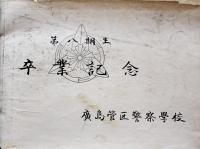 第八期生
卒業記念
廣島管区警察學校